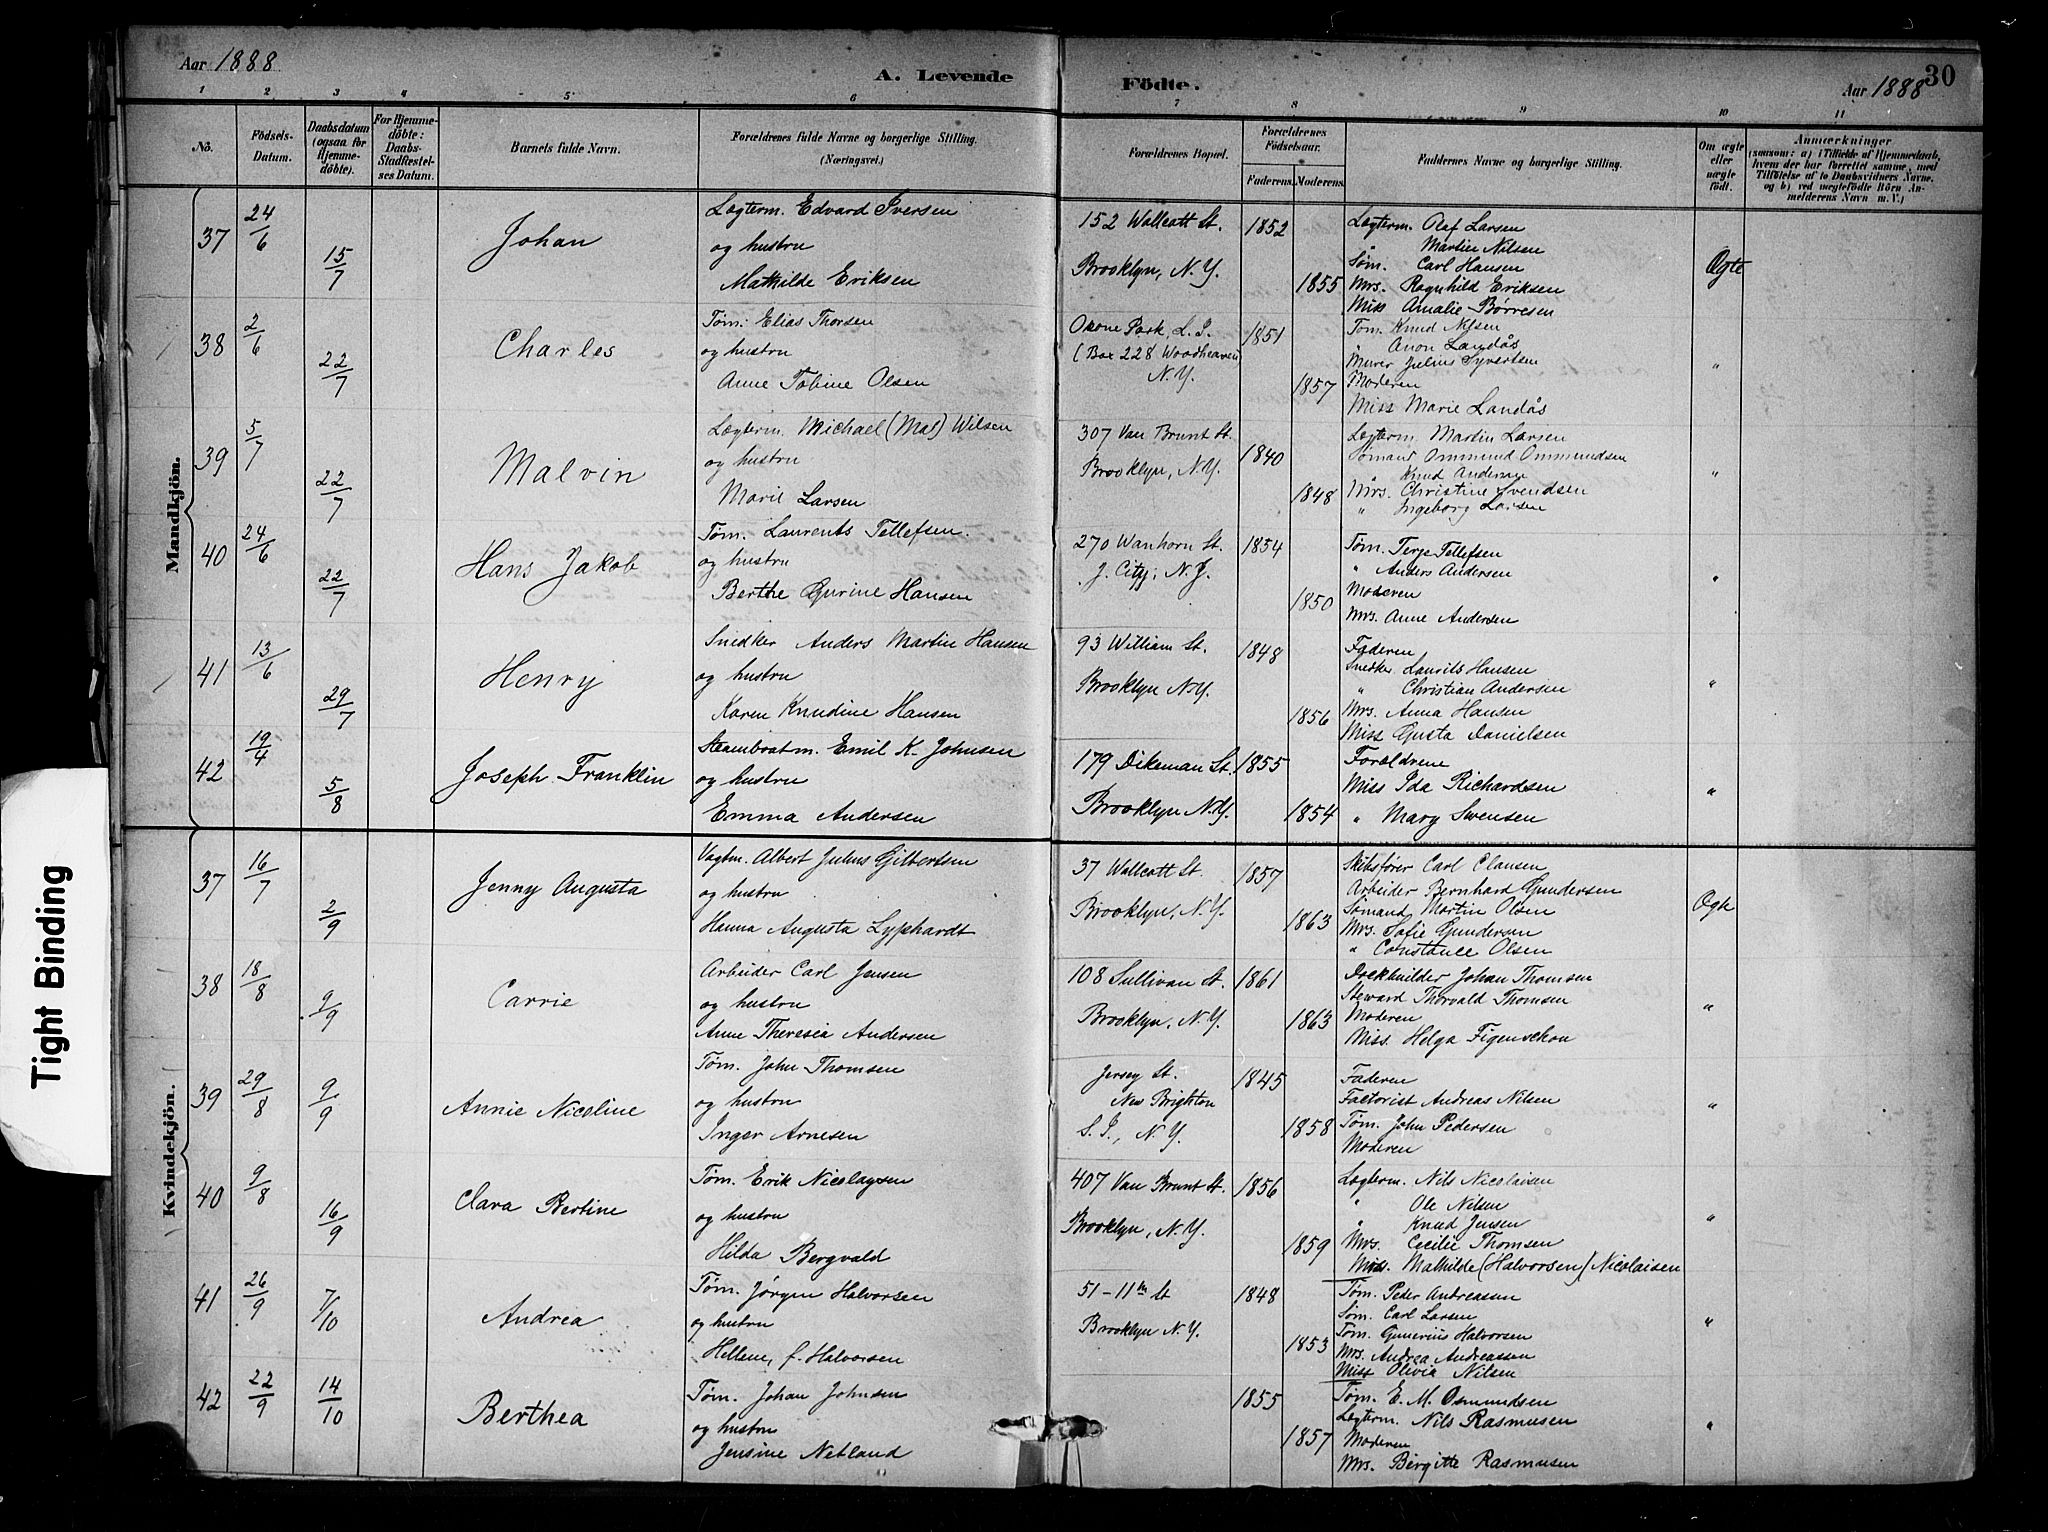 Aar 1888
A. Levende
Födte.
Aar 1888
30
1 2 3 4 5 6 7 8 9 10 11
No.
Födsels-Datum.
Daabsdatum (ogsaa for Hjemmedöbte).
For Hjemmedöbte: Daabs-Stadfæstelses Datum.
Barnets fulde Navn.
Forældrenes fulde Navne og borgerlige Stilling.
(Næringsvei.)
Forældrenes Bopæl.
Forældrenes Födselsaar.
Faderens. Moderens.
Faddernes Navne og borgerlige Stilling.
Om ægte eller uægte födt.
Anmærkninger
(saasom: a) i Tilfælde af Hjemmedaab, hvem der har forrettet samme, med Tilföielse af to Daabsvidners Navne, og b) ved uægtefödte Börn Anmelderens Navn m. V.)
Mandkjön.
37 24/6 15/7 Johan
Lægterm. Edvard Iversen
og hustru
Mathilde Eriksen
152 Wallcott St.
Brooklyn, N.Y.
1852
1855
Lægterm. Olaf Larsen
Martin Nilsen
Søm. Carl Hansen
Mrs. Ragnhild Eriksen
Miss Amalie Børresen
Ægte
38 2/6 22/7 Charles
Tøm. Elias Thorsen
og hustru
Anne Tobine Olsen
Ozone Park, L.I.
(Box 228 Woodheaven
N.Y.
1851
1857
Tøm. Knud Nilsen
" Anon Landås
Murer Julius Syvertsen
Moderen
Miss Marie Landås
"
39 5/7 22/7 Malvin
Lægterm. Michael (Mal) Wilsen
og hustru
Marie Larsen
307 Van Brunt St.
Brooklyn, N.Y.
1840
1848
Lægterm. Martin Larsen
Sømand Ommund Ommundsen
" Knud Andersen
Mrs. Christine Svendsen
" Ingeborg Larsen
"
40 24/6 22/7 Hans Jakob
Tøm. Laurents Tellefsen.
og hustru
Berthe Gurine Hansen
270 Wanhorn St.
J. City, N.J.
1854
1850
Tøm. Terje Tellefsen
" Anders Andersen
Moderen
Mrs. Anne Andersen
"
41 13/6 29/7 Henry
Snedker Anders Martin Hansen
og hustru
Karen Knudine Hansen
93 William St.
Brooklyn N.Y.
1848
1856
Faderen
Snedker Laurits Hansen
" Christian Andersen
Mrs. Anna Hansen
Miss Gusta Danielsen
"
42 19/4 5/8 Joseph Franklin
Steamboatm. Emil K. Johnsen
og hustru
Emma Andersen
179 Dikeman St.
Brooklyn N.Y.
1855
1854
Forældrene
Miss Ida Richardsen
" Mary Swensen
"
Kvindekjön.
37 16/7 2/9 Jenny Augusta
Vagtm. Albert Julius Gilbertsen
og hustru
Hanna Augusta Lyphardt
37 Wallcott St.
Brooklyn, N.Y.
1857
1863
Skibsfører Carl Clausen
Arbeider Bernhard Gundersen
Sømand Martin Olsen
Mrs. Sofie Gundersen
" Constance Olsen
Ægte
38 18/8 9/9 Carrie
Arbeider Carl Jensen
og hustru
Anne Theresia Andersen
108 Sullivan St.
Brooklyn, N.Y.
1861
1863
Dockbuilder Johan Thomsen
Steward Thorvald Thomsen
Moderen
Miss. Helga Figenschou
"
39 29/8 9/9 Annie Nicoline
Tøm. John Thomsen
og hustru
Inger Arnesen
Jersey St.
New Brighton
S.I., N.Y.
1845
1858
Faderen
Factorist Andreas Nilsen
Tøm. John Pedersen
Moderen
"
40 9/8 16/9 Clara Bertine
Tøm. Erik Nicolaysen
og hustru
Hilda Bergvald
407 Van Brunt St.
Brooklyn, N.Y.
1856
1859
Lægterm. Nils Nicolaisen
" Ole Nilsen
" Knud Jensen
Mrs. Cecilie Thomsen
Miss. Mathilde (Halvorsen) Nicolaisen
"
41 26/9 7/10 Andrea
Tøm. Jørgen Halvorsen
og hustru
Hellene, f. Halvorsen
51 - 11th St
Brooklyn N.Y.
1848
1853
Tøm. Peder Andreassen
Søm. Carl Larsen
Tøm. Gunerius Halvorsen
Mrs. Andrea Andreassen
Miss Olivia Nilsen
"
42 22/9 14/10 Berthea
Tøm. Johan Johnsen
og hustru
Jensine Netland
1855
1857
Tøm. E. M. Osmundsen
Lægterm. Nils Rasmusen
Moderen
Mrs. Bergitte Rasmusen
"
Tight Binding